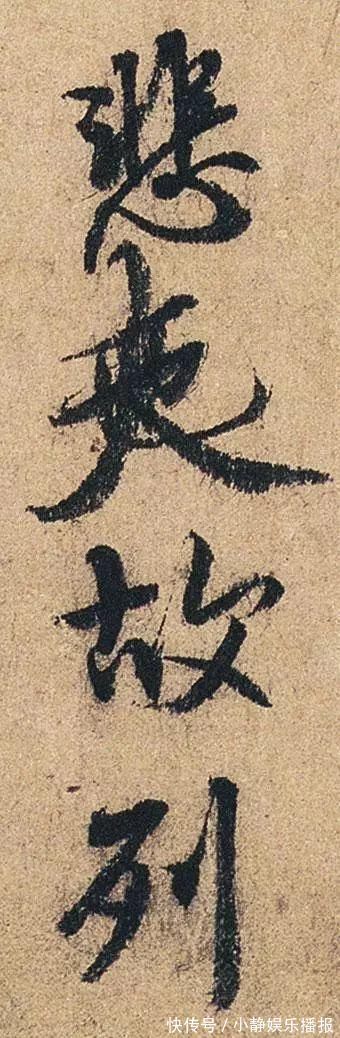 悲夫故列
快传号／小静娱乐播报